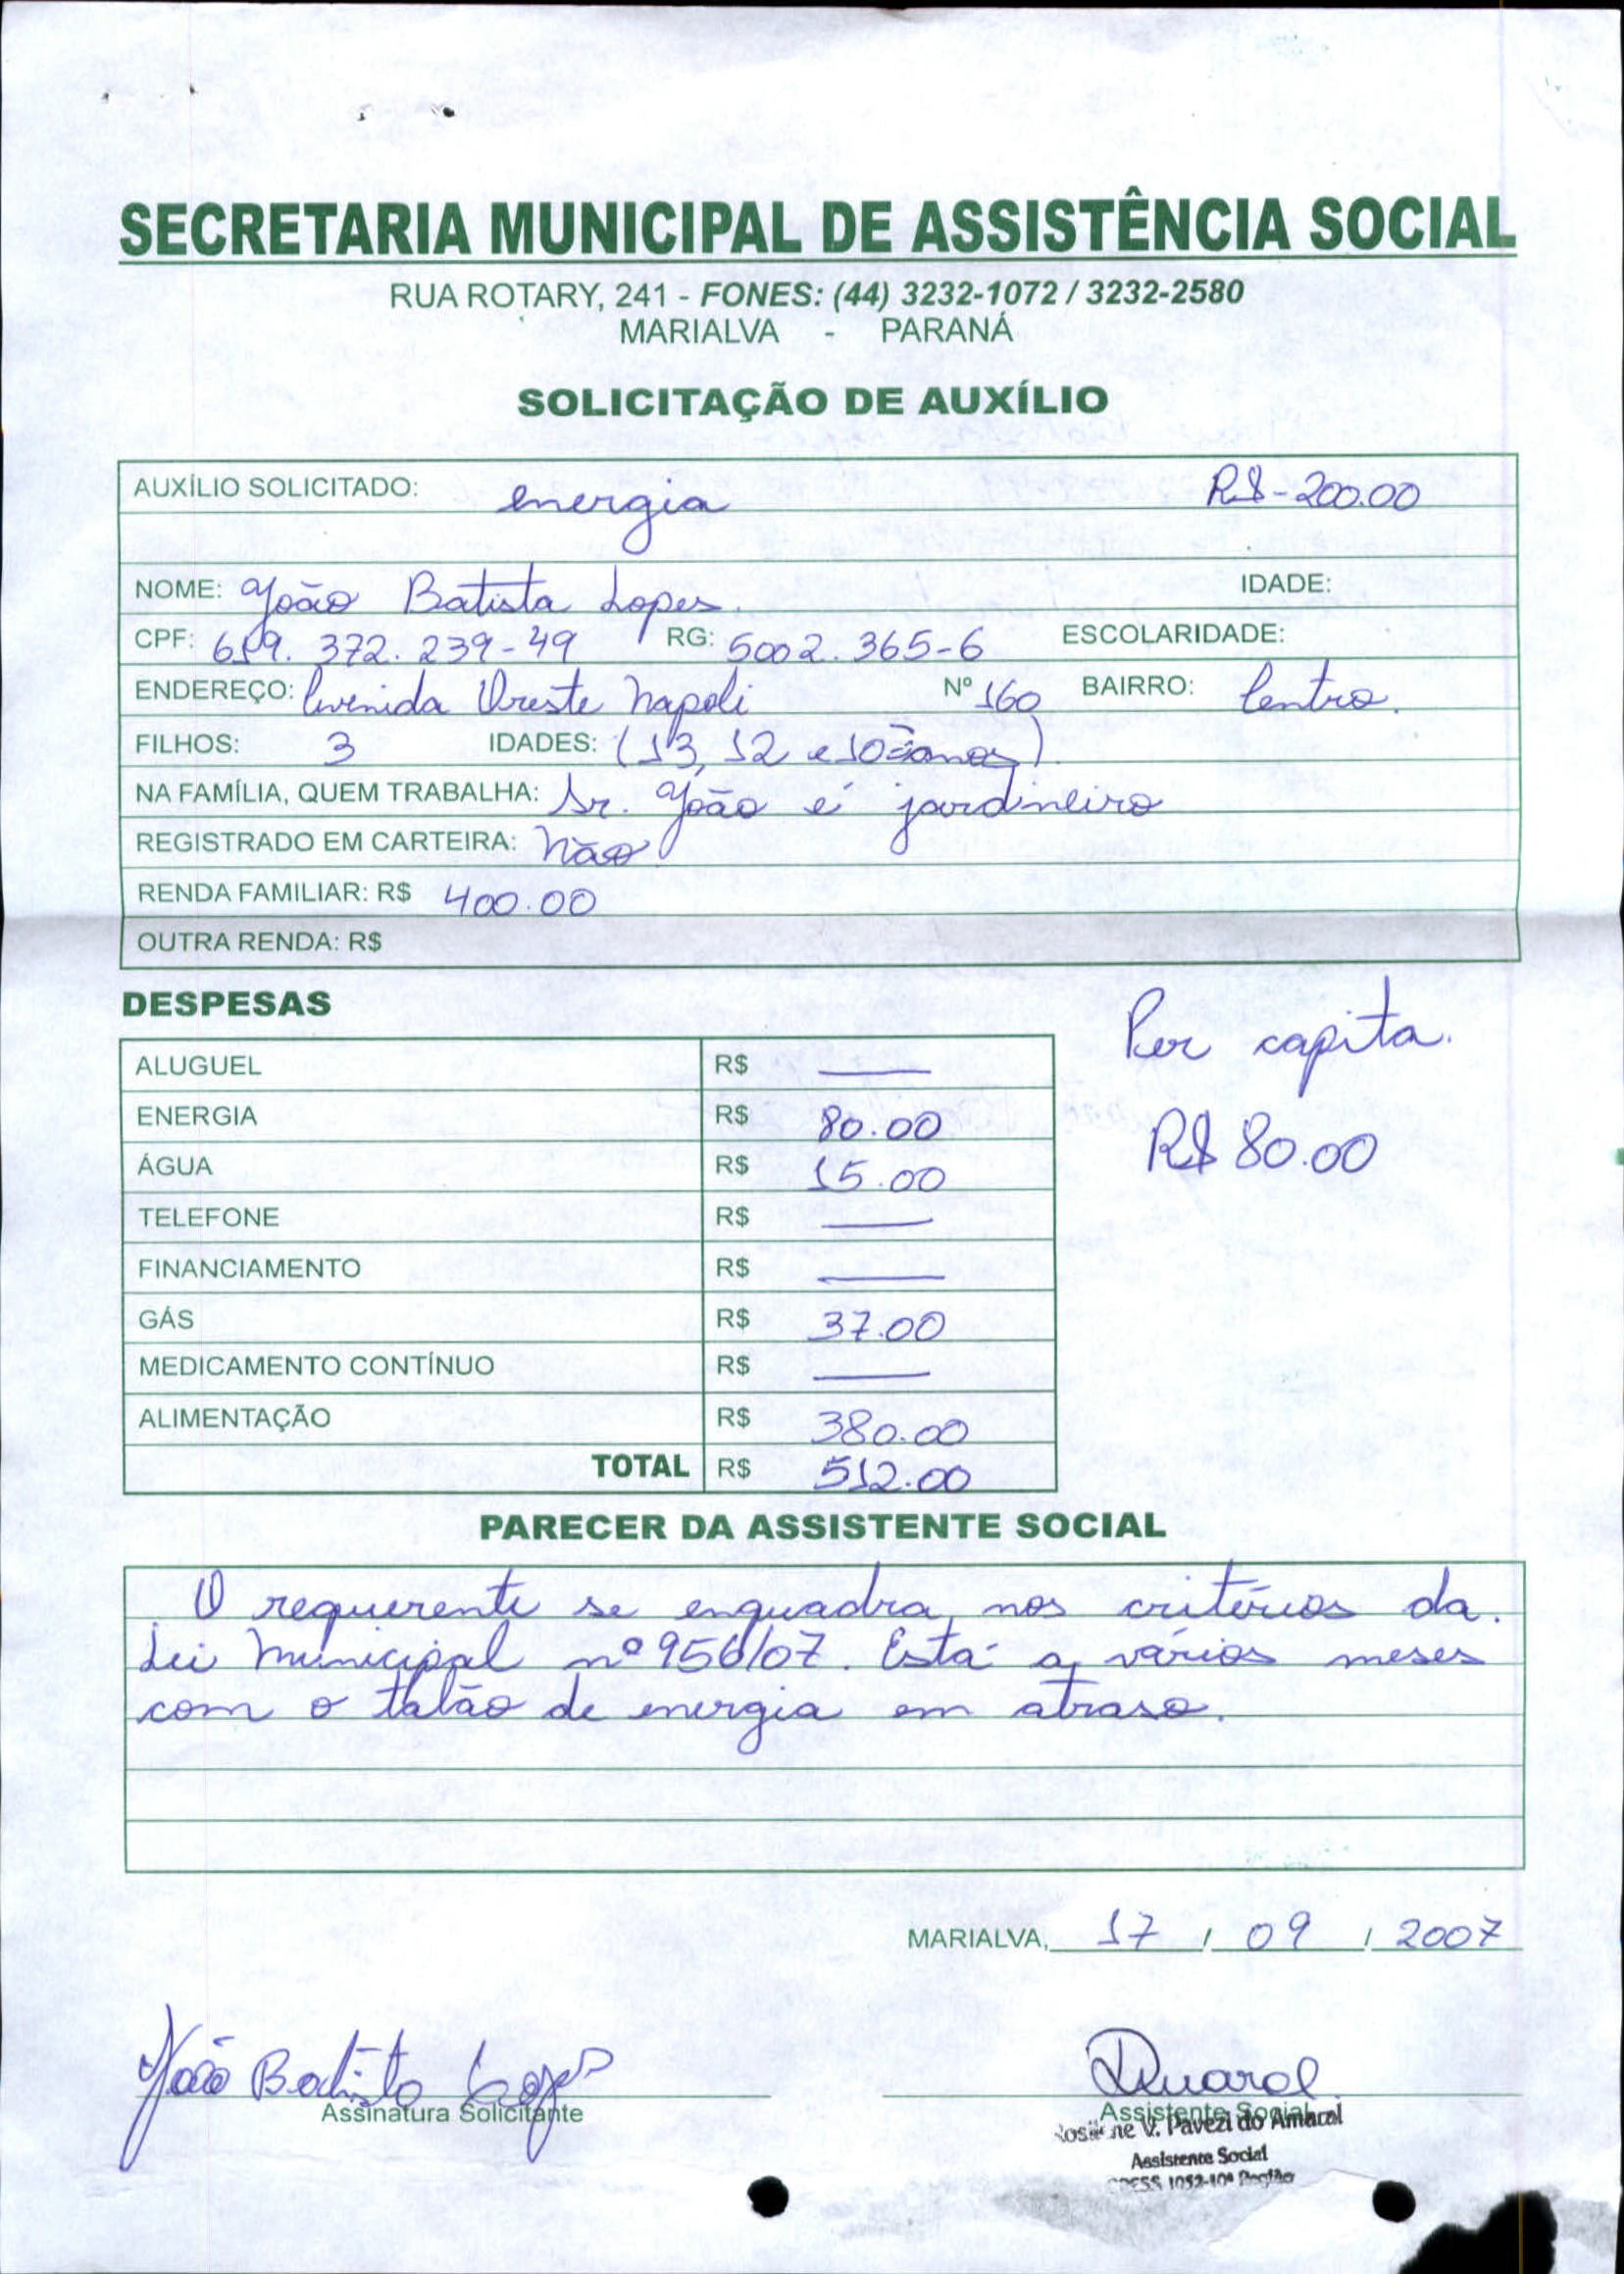 SECRETARIA MUNICIPAL DE ASSISTÊNCIA SOCIAL
RUA ROTARY, 241 - FONES: (44) 3232-1072 / 3232-2580
MARIALVA - PARANÁ
SOLICITAÇÃO DE AUXÍLIO
AUXÍLIO SOLICITADO: energia R$-200.00
NOME: João Batista Lopes. IDADE:
CPF: 659.372.239-49 RG: 5002.365-6 ESCOLARIDADE:
ENDEREÇO: Avenida Oreste Napoli Nº 160 BAIRRO: Centro.
FILHOS: 3 IDADES: (13, 12 e 10 anos)
NA FAMÍLIA, QUEM TRABALHA: Sr. João é jardineiro
REGISTRADO EM CARTEIRA: Não
RENDA FAMILIAR: R$ 400.00
OUTRA RENDA: R$
DESPESAS
Per capita.
R$ 80.00
ALUGUEL R$ —
ENERGIA R$ 80.00
ÁGUA R$ 15.00
TELEFONE R$ —
FINANCIAMENTO R$ —
GÁS R$ 37.00
MEDICAMENTO CONTÍNUO R$ —
ALIMENTAÇÃO R$ 380.00
TOTAL R$ 512.00
PARECER DA ASSISTENTE SOCIAL
O requerente se enquadra nos critérios da
Lei Municipal nº 956/07. Está a vários meses
com o talão de energia em atraso.
MARIALVA, 17 / 09 / 2007
João Batista Lopes
Assinatura Solicitante
Assistente Social
V. Pavezi do Amaral
Assistente Social
1052-10ª Região